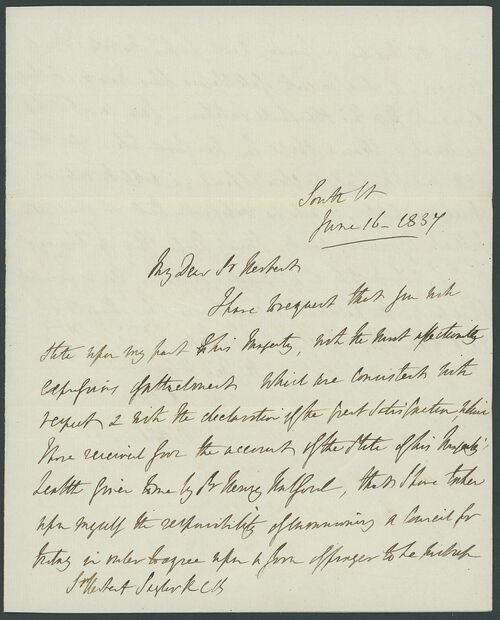 South St
June 16 - 1837
My Dear Sr Herbert
I have to request that you will
state upon my part to his Majesty, with the most affectionate
expressions of attachment which are consistent with
respect & with the declaration of the great satisfaction which
I have received from the account of the State of his Majesty's
health given to me by Sr Henry Halford, that I have taken
upon myself the responsibility of summoning a Council for
today in order to agree upon a form of prayer to be
Sr Herbert Taylor KCB